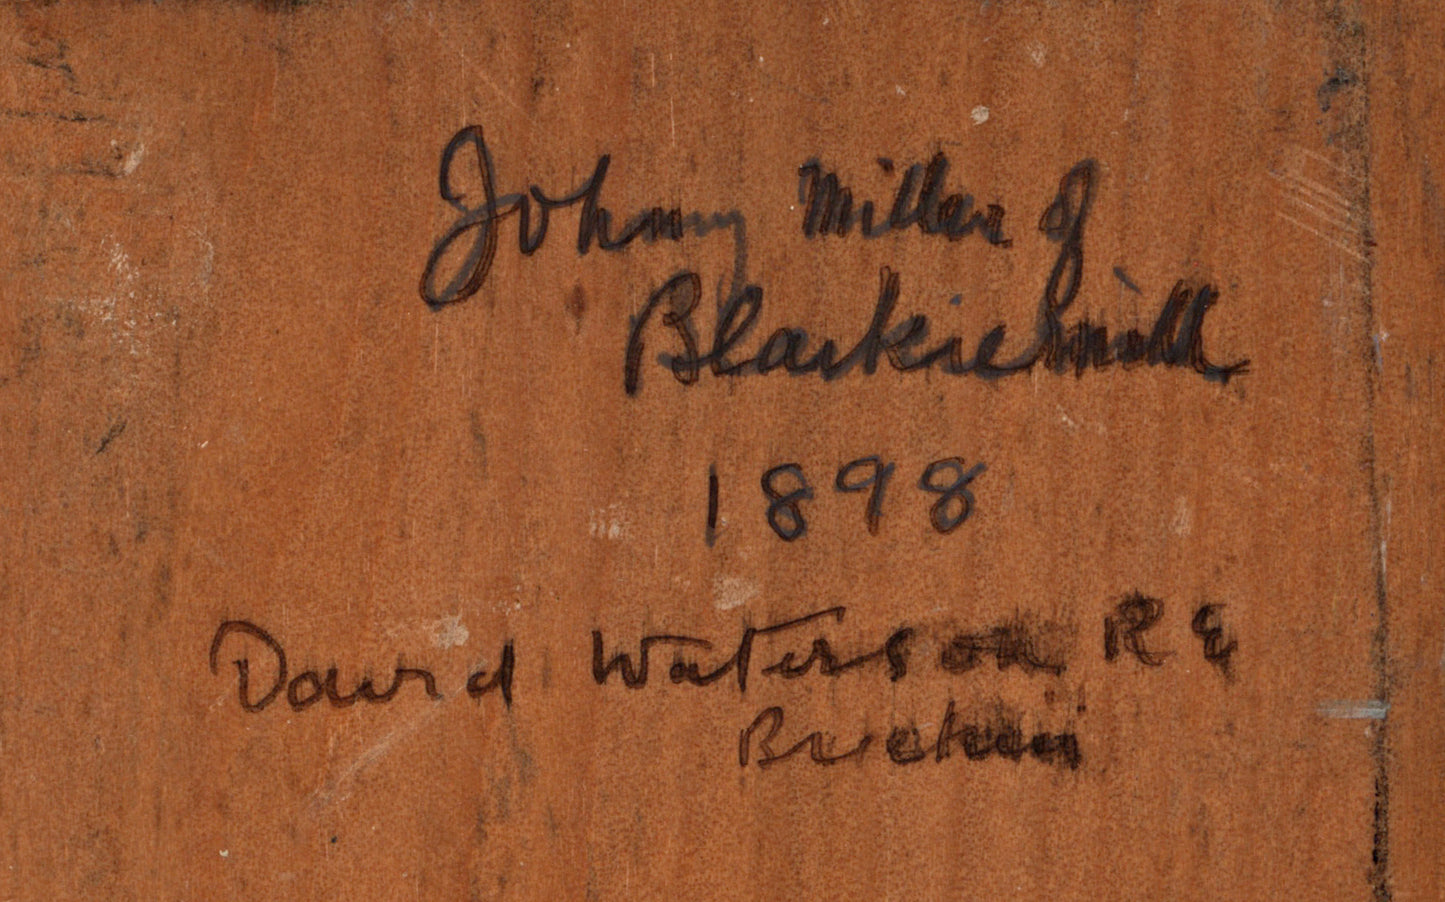 Johnny Miller of
Blackiemill
1898
David Waterson R E
Brechin